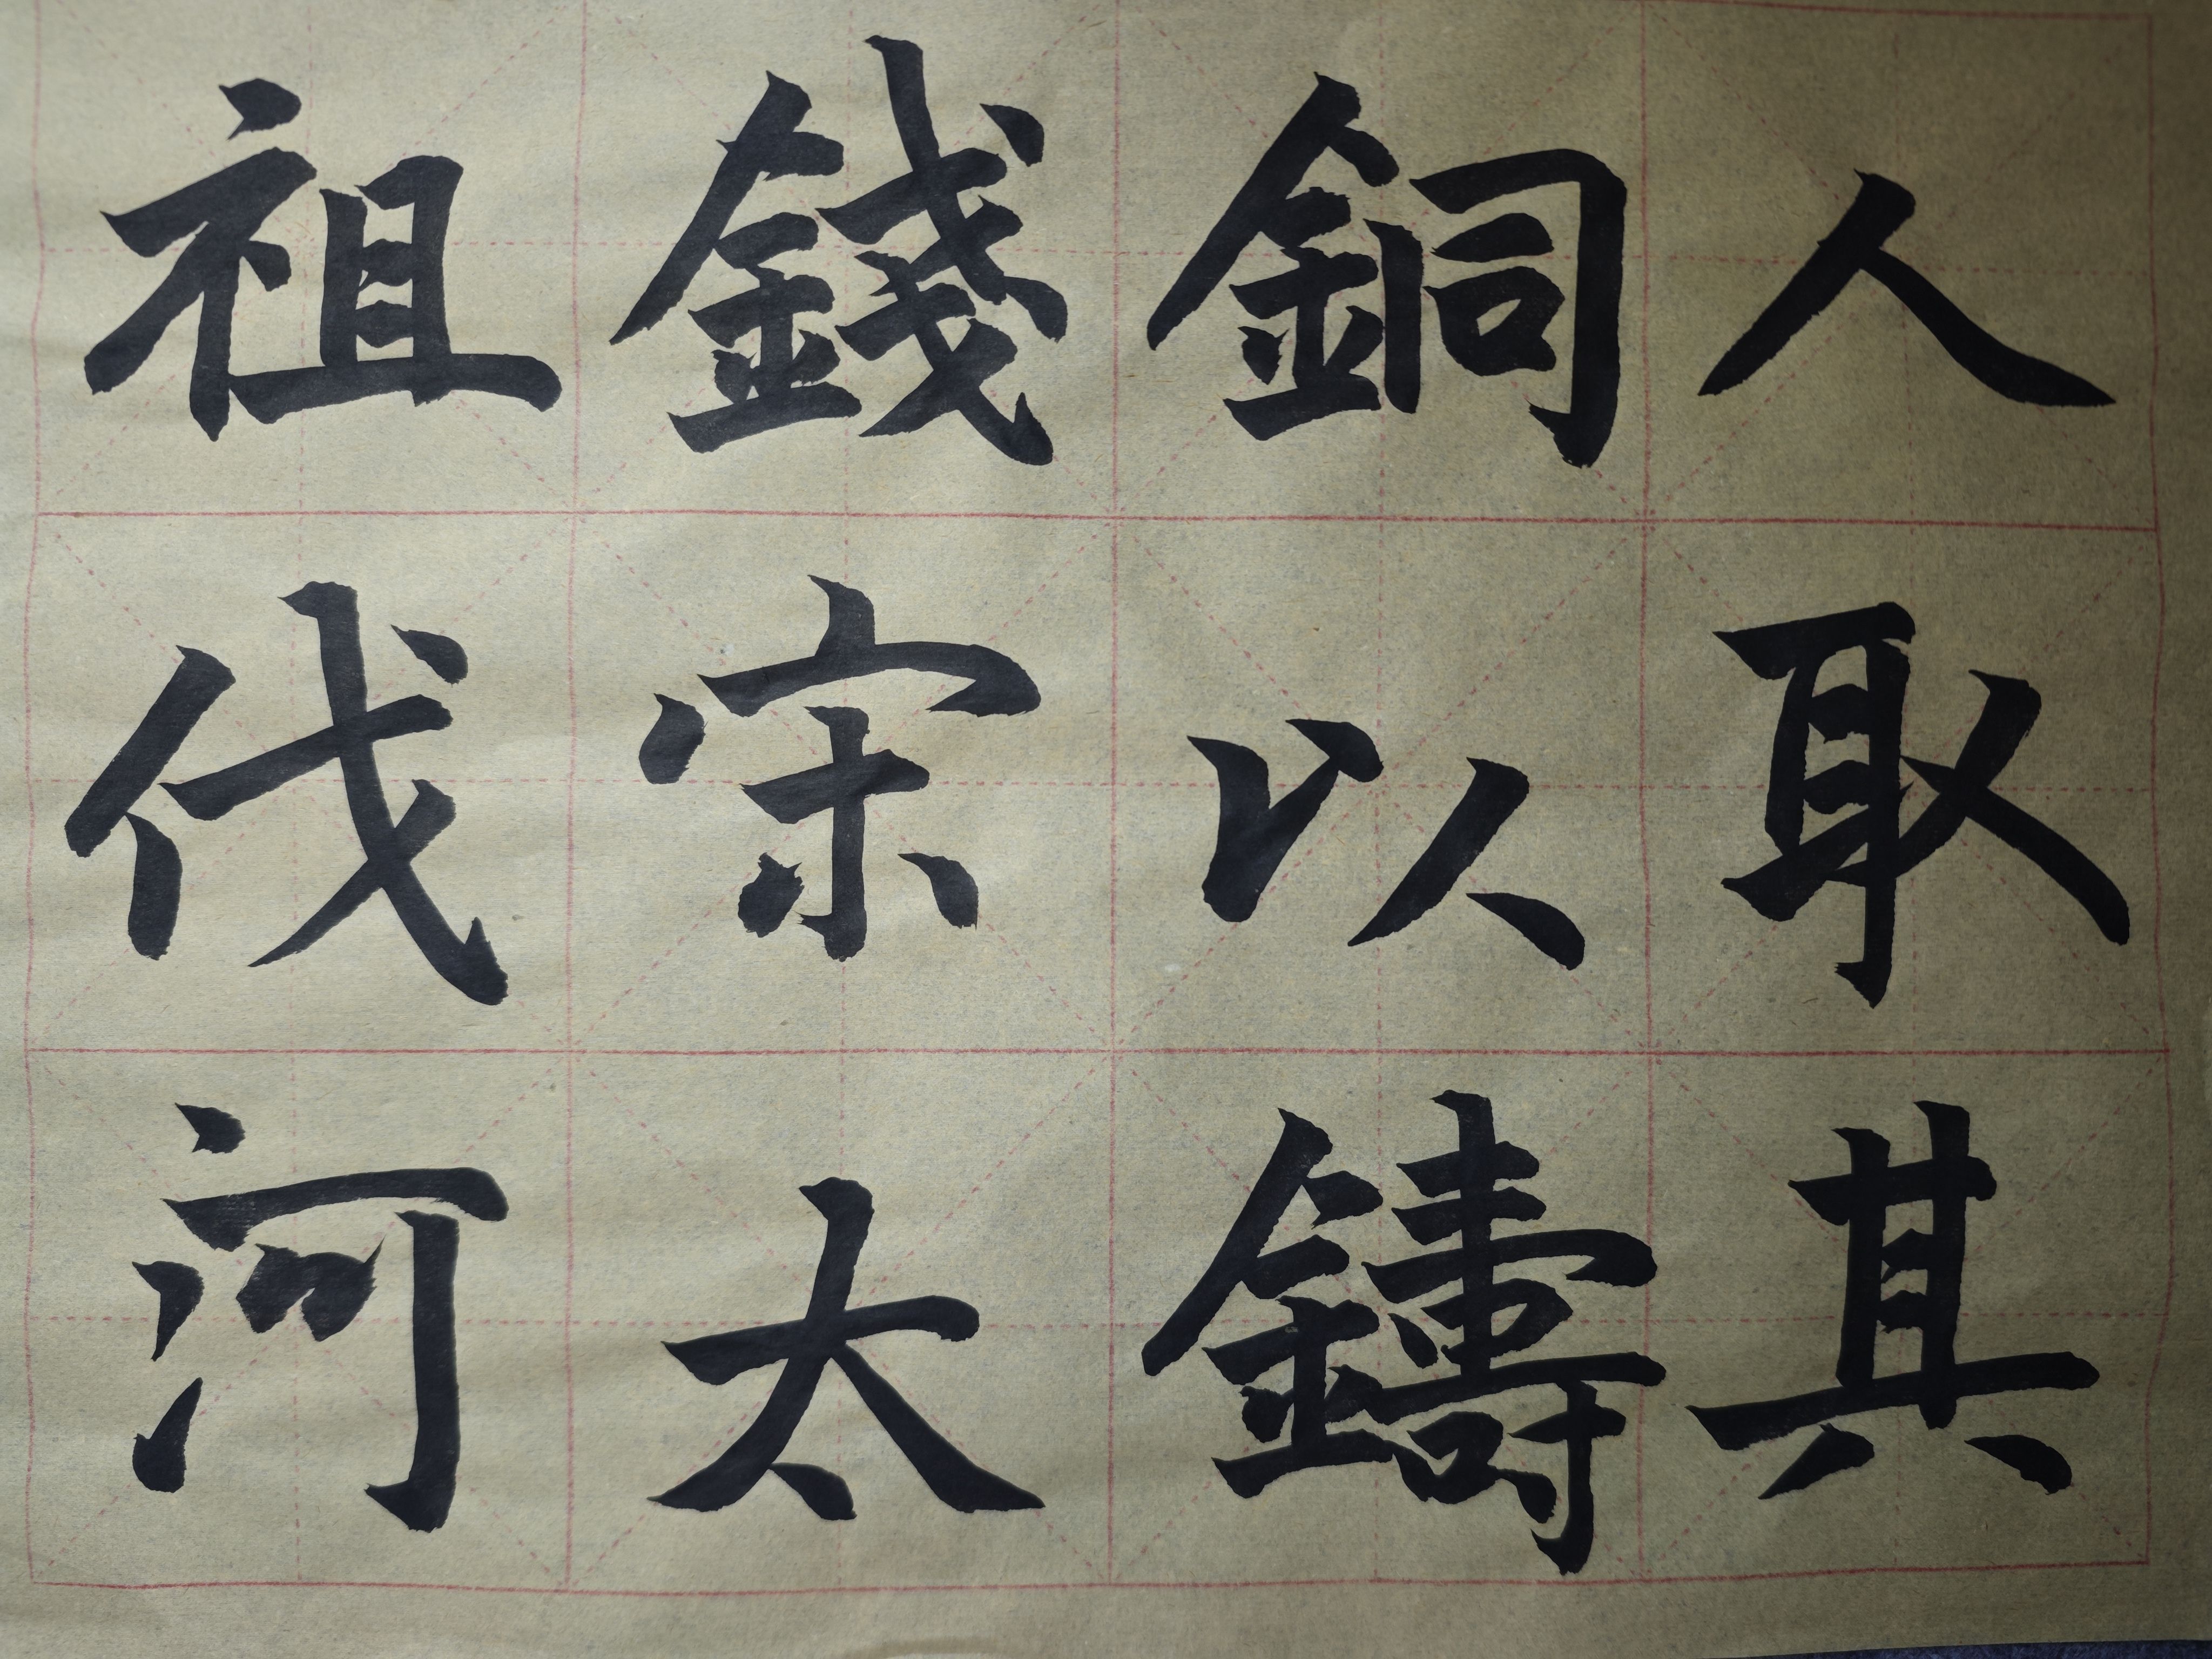 人取其
銅以鑄
錢宋太
祖伐河